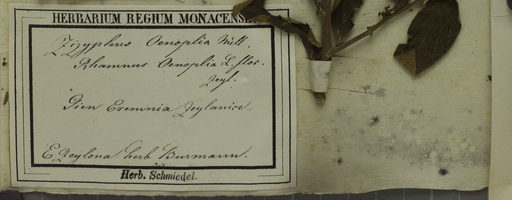 HERBARIUM REGIUM MONACENSE
Zizyphus Oenoplia Mill.
Rhamnus Oenoplia L. flor.
Zeyl:
Zeylanice.
E Zeylona herb Burmann.
Herb. Schmiedel.